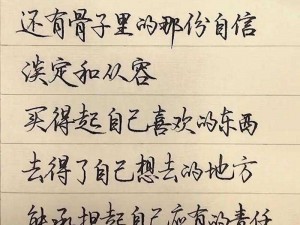 还有骨子里的那份自信
淡定和从容
买得起自己喜欢的东西
去得了自己想去的地方
能承担起自己应有的责任